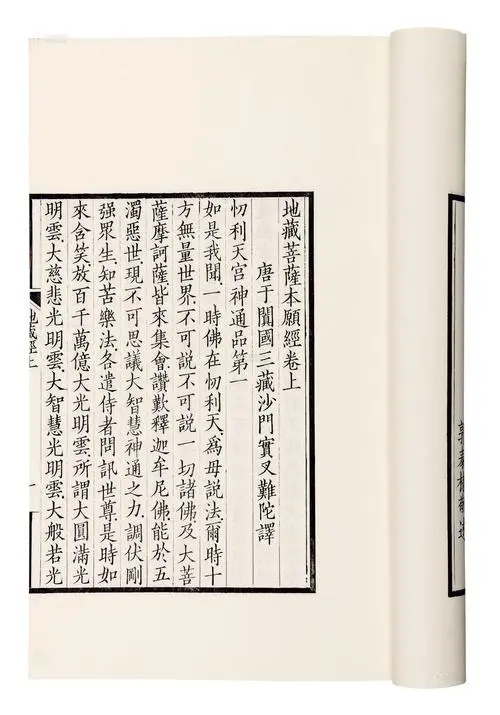 地藏菩薩本願經卷上
唐于闐國三藏沙門實叉難陀譯
忉利天宮神通品第一
如是我聞、一時佛在忉利天、爲母說法、爾時十
方無量世界、不可說不可說一切諸佛及大菩
薩摩訶薩皆來集會、讚歎釋迦牟尼佛、能於五
濁惡世、現不可思議大智慧神通之力、調伏剛
强眾生、知苦樂法、各遣侍者、問訊世尊、是時如
來含笑、放百千萬億大光明雲、所謂大圓滿光
明雲、大慈悲光明雲、大智慧光明雲、大般若光
地藏經上
一